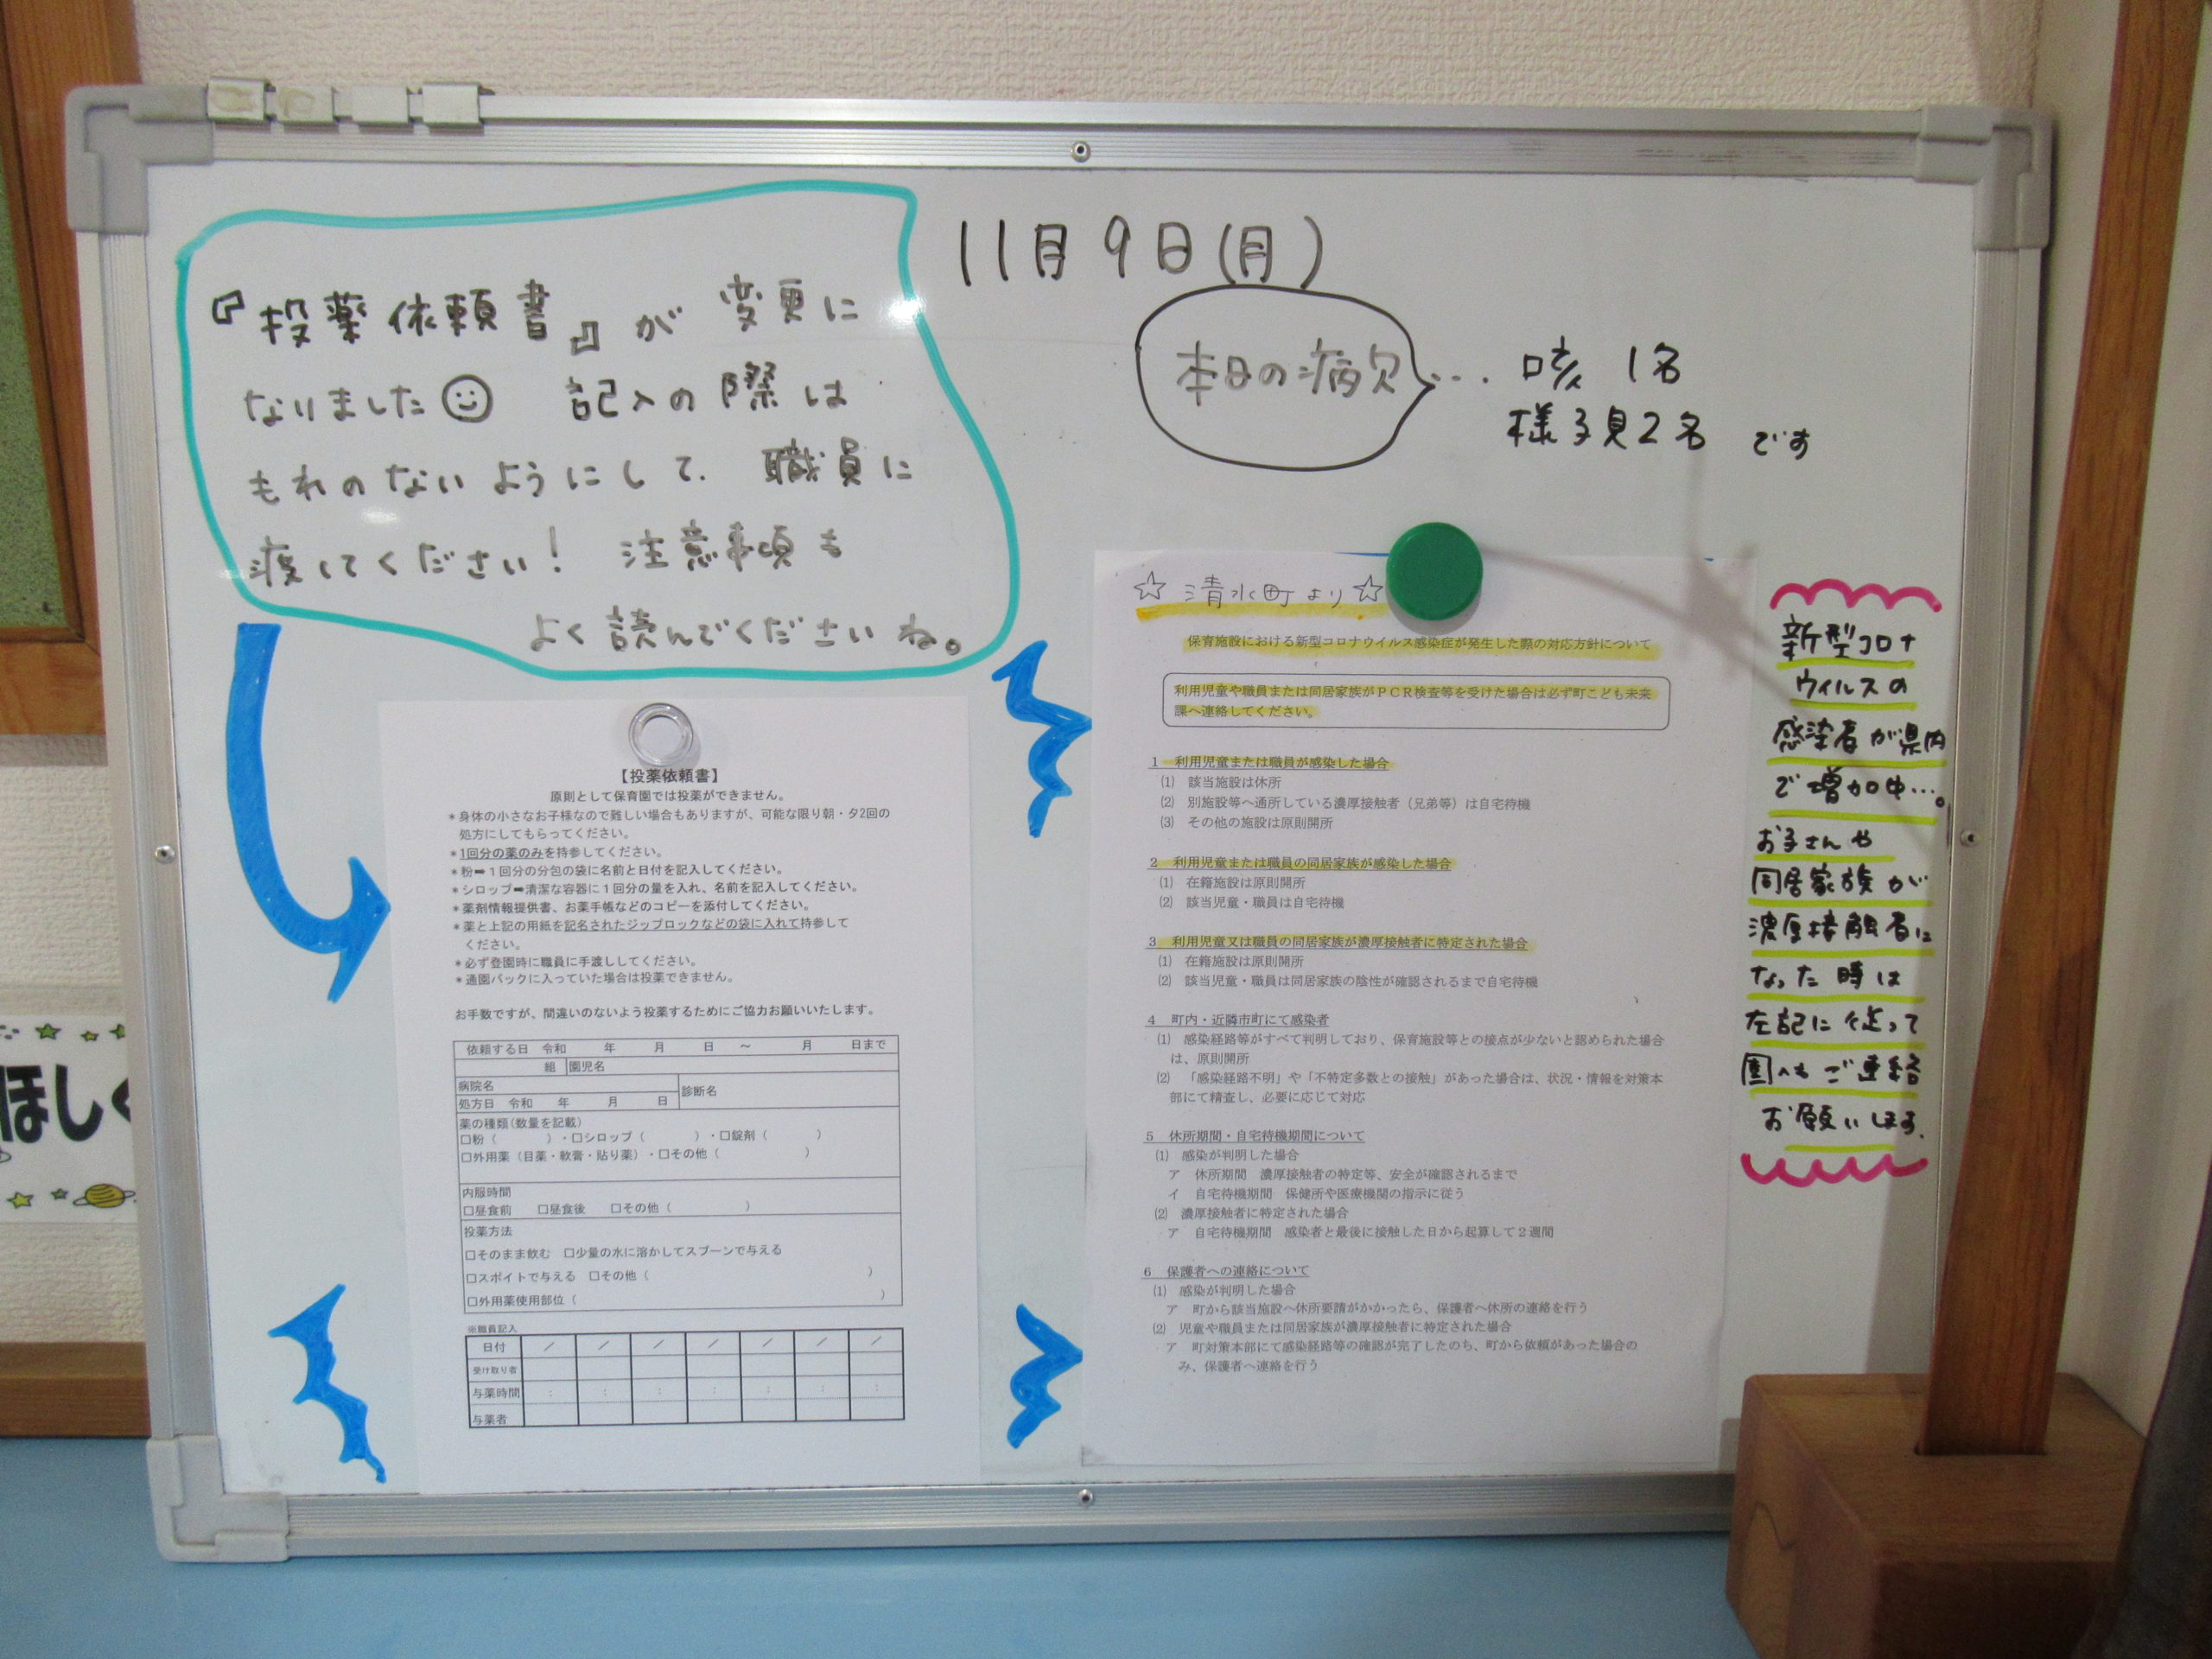 11月9日(月)
『投薬依頼書』が変更に
なりました 記入の際は
もれのないようにして、職員に
渡してください! 注意事項も
よく読んでくださいね。
本日の病欠 … 咳 1名
様子見2名 です
【投薬依頼書】
原則として保育園では投薬ができません。
*身体の小さなお子様なので難しい場合もありますが、可能な限り朝・夕2回の
処方にしてもらってください。
*1回分の薬のみを持参してください。
*粉➡1回分の分包の袋に名前と日付を記入してください。
*シロップ➡清潔な容器に1回分の量を入れ、名前を記入してください。
*薬剤情報提供書、お薬手帳などのコピーを添付してください。
*薬と上記の用紙を記名されたジップロックなどの袋に入れて持参して
ください。
*必ず登園時に職員に手渡ししてください。
*通園バックに入っていた場合は投薬できません。
お手数ですが、間違いのないよう投薬するためにご協力お願いいたします。
依頼する日 令和 年 月 日 ～ 月 日まで
組 園児名
病院名
診断名
処方日 令和 年 月 日
薬の種類(数量を記載)
□粉( )・□シロップ( )・□錠剤( )
□外用薬(目薬・軟膏・貼り薬)・□その他( )
内服時間
□昼食前 □昼食後 □その他( )
投薬方法
□そのまま飲む □少量の水に溶かしてスプーンで与える
□スポイトで与える □その他( )
□外用薬使用部位( )
※職員記入
日付 / / / / / / /
受け取り者
与薬時間 : : : : : : :
与薬者
☆ 清水町より ☆
保育施設における新型コロナウイルス感染症が発生した際の対応方針について
利用児童や職員または同居家族がPCR検査等を受けた場合は必ず町こども未来
課へ連絡してください。
1 利用児童または職員が感染した場合
(1) 該当施設は休所
(2) 別施設等へ通所している濃厚接触者(兄弟等)は自宅待機
(3) その他の施設は原則開所
2 利用児童または職員の同居家族が感染した場合
(1) 在籍施設は原則開所
(2) 該当児童・職員は自宅待機
3 利用児童又は職員の同居家族が濃厚接触者に特定された場合
(1) 在籍施設は原則開所
(2) 該当児童・職員は同居家族の陰性が確認されるまで自宅待機
4 町内・近隣市町にて感染者
(1) 感染経路等がすべて判明しており、保育施設等との接点が少ないと認められた場合
は、原則開所
(2) 「感染経路不明」や「不特定多数との接触」があった場合は、状況・情報を対策本
部にて精査し、必要に応じて対応
5 休所期間・自宅待機期間について
(1) 感染が判明した場合
ア 休所期間 濃厚接触者の特定等、安全が確認されるまで
イ 自宅待機期間 保健所や医療機関の指示に従う
(2) 濃厚接触者に特定された場合
ア 自宅待機期間 感染者と最後に接触した日から起算して2週間
6 保護者への連絡について
(1) 感染が判明した場合
ア 町から該当施設へ休所要請がかかったら、保護者へ休所の連絡を行う
(2) 児童や職員または同居家族が濃厚接触者に特定された場合
ア 町対策本部にて感染経路等の確認が完了したのち、町から依頼があった場合の
み、保護者へ連絡を行う
新型コロナ
ウィルスの
感染者が県内
で増加中…。
お子さんや
同居家族が
濃厚接触者に
なった時は
左記に従って
園へもご連絡
お願いします。
ほし